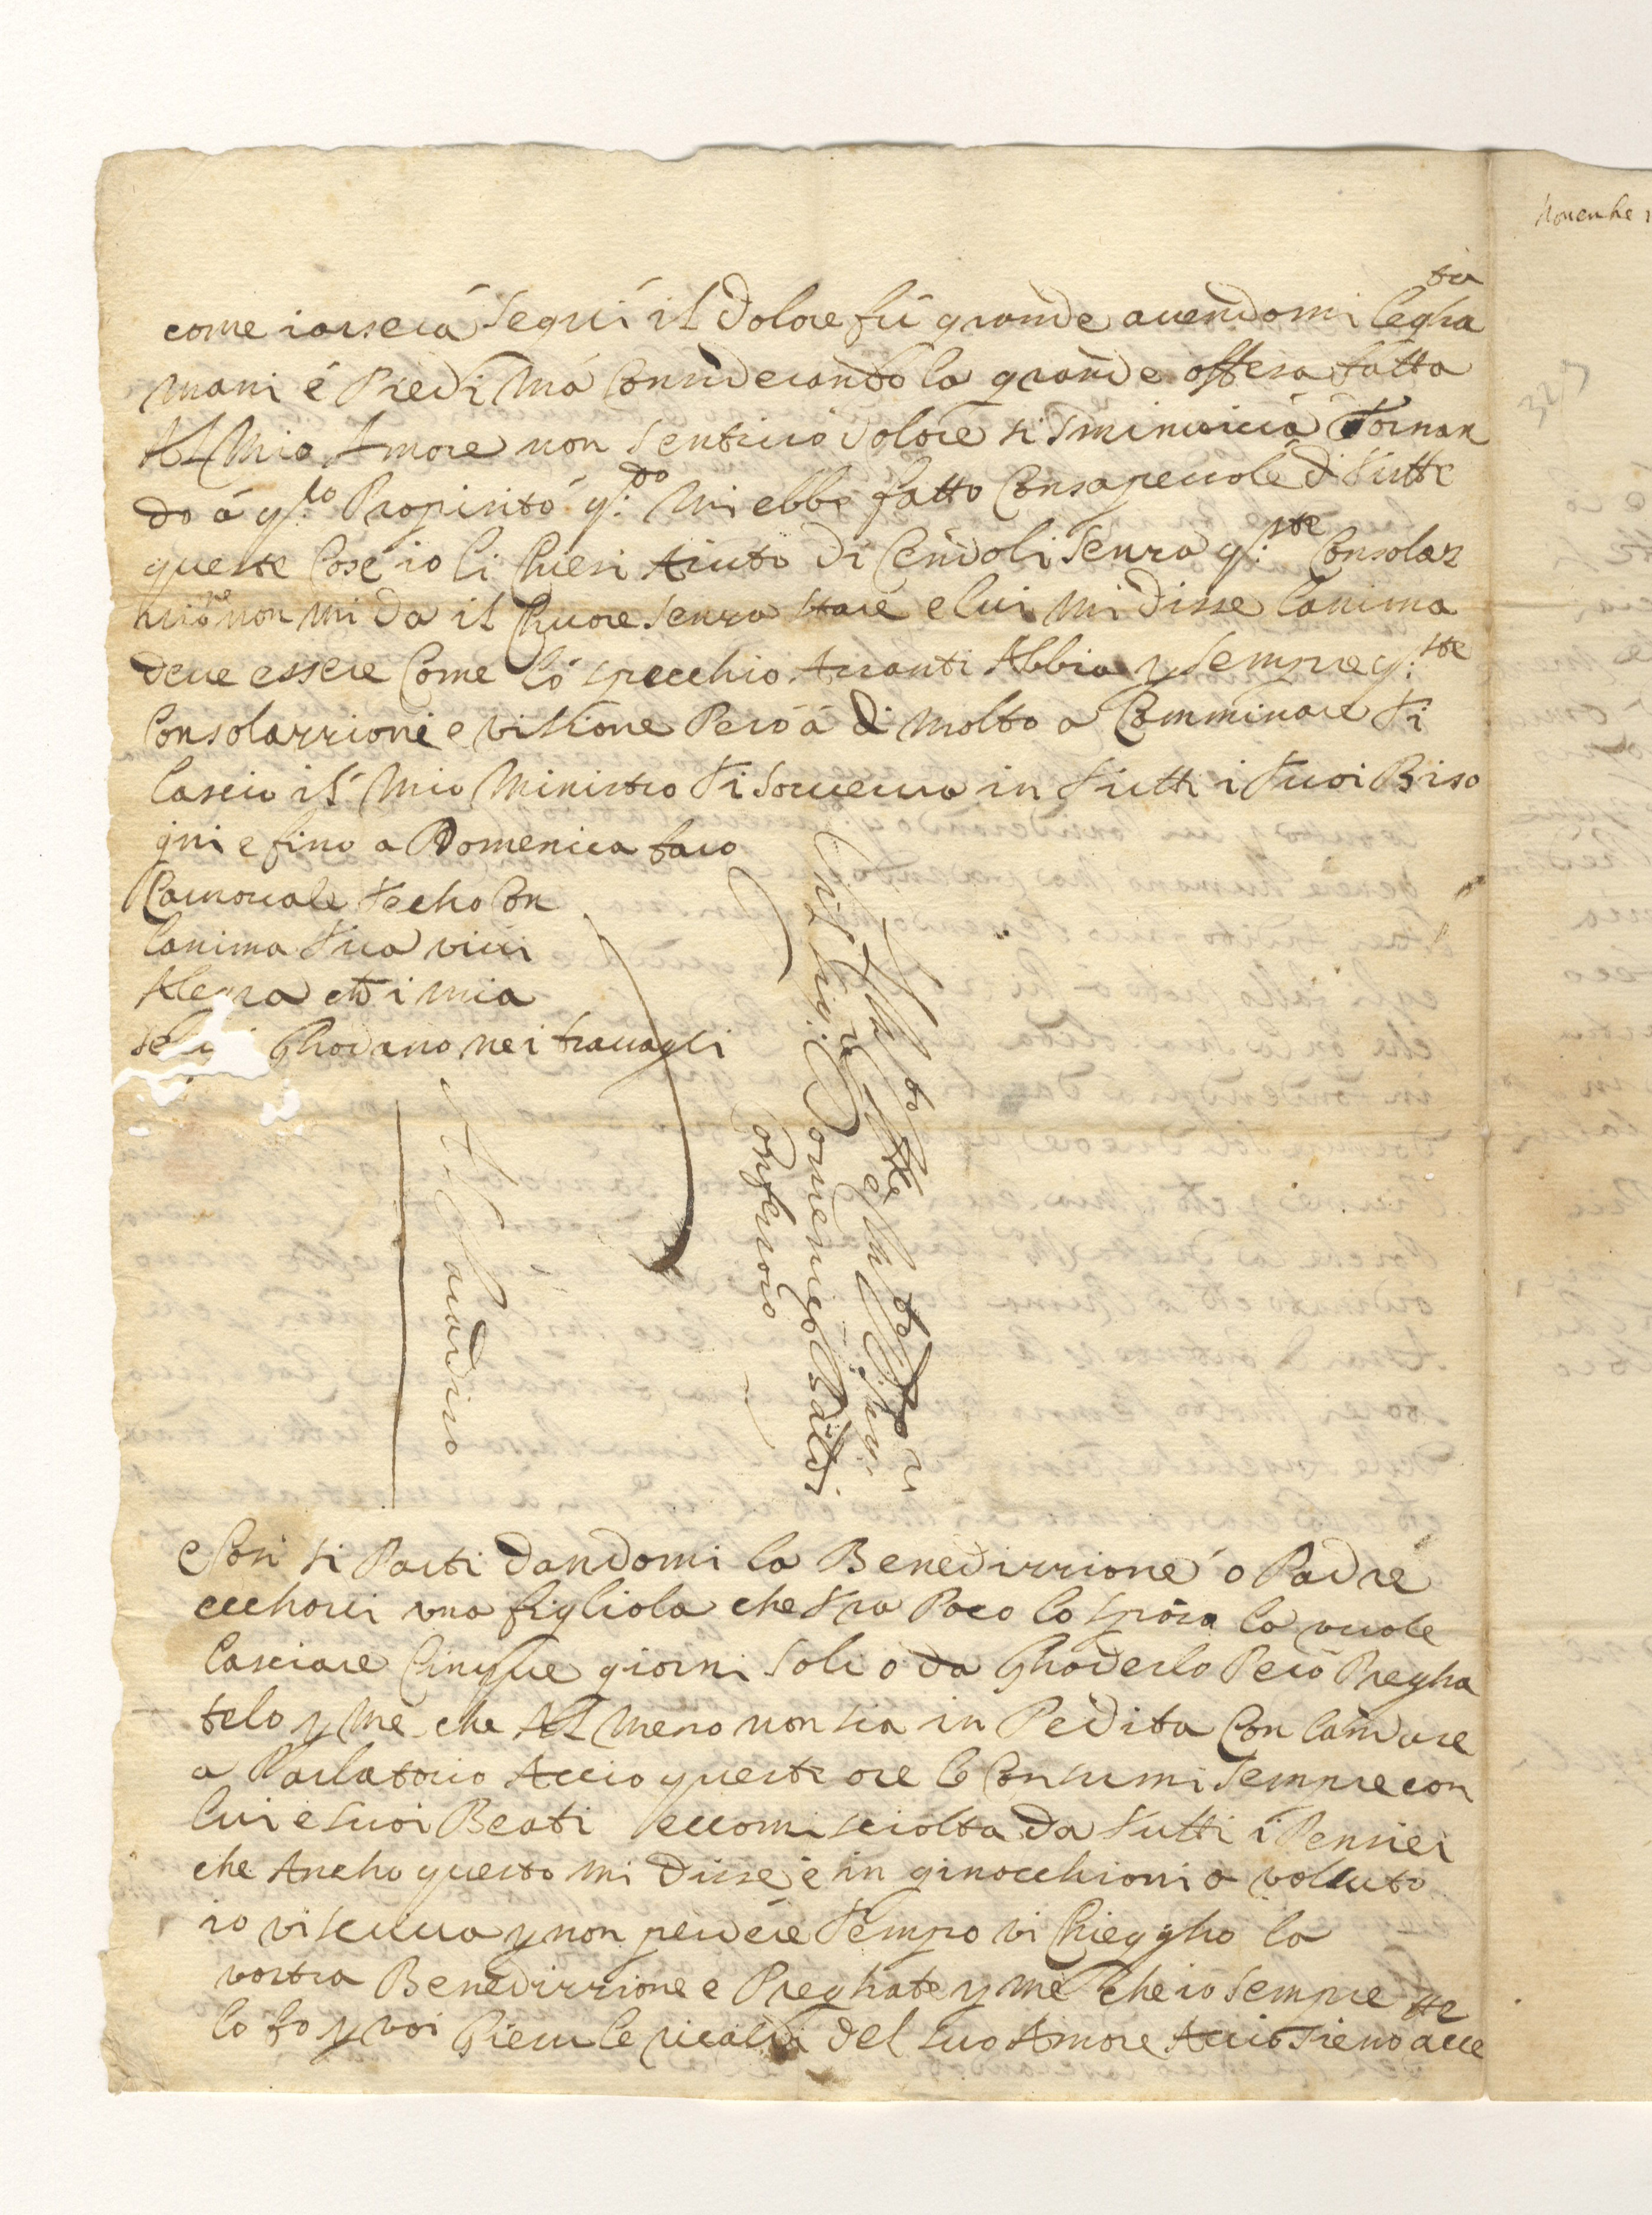 come iarsera Seguì il dolore fù grande avendomi legha
ta
mani é Piedi Má Considerando la grande offesa fatta
Al Mio Amore non sentivo dolore si sminuiua Tornan
do á q.to Propisito q.do Mi ebbe fatto Consapeuole di Tutte
queste Cose io li Chiesi Aiuto Di Cendoli Senza q.ste Consolaz
zione non mi da il Chuore senza stare e lui mi disse lanima
deue essere Come ló specchio Auanti Abbia p sempre q.ste
Consolazzioni e visione Peró á di molto a Camminare Ti
lascio il Mio Ministro Ti Souuenua in Tutti i Tuoi Biso
gni e fino a Domenica faro
Carnouale Techo Con
lanima Tua viui
Alegra
Ghodano nei trauagli
Al Molto Ill.e e Molto R.do
Sig.re Domenicho Baldi
Confessoro
S. Giouanni
e Cosi si Parti dandomi la Benedizzione o Padre
ecchoui una figliola che Tra Poco lo sposa la vuole
lasciare Cinque giorni Soli o da Ghoderlo Peró Pregha
telo p me che Al meno non sia in Pedita Con landare
a Parlatorio Accio queste ore le Consumi Sempre con
lui e suoi Beati eccomi sciolta da Tutti i Pensier
che Ancho questo mi disse e in ginocchioni o volluto
io vi scriua p non perdere Tempo vi Chieggho la
vostra Benedizzione e Preghate p me che io sempre
lo fo p voi del suo Amore Accio sieno acce
se